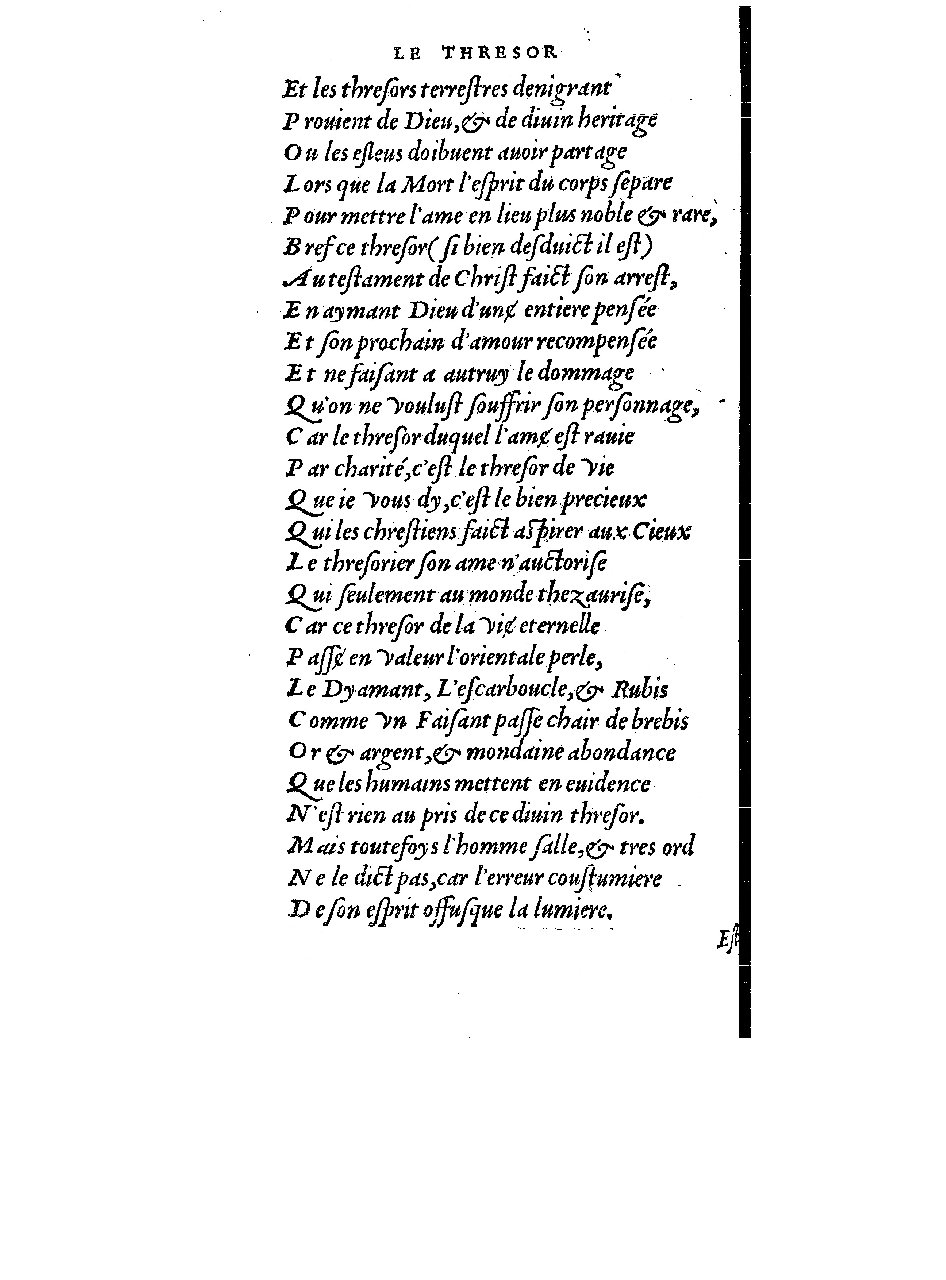 LE THRESOR
Et les threſors terreſtres denigrant
Prouient de Dieu,& de diuin heritage
Ou les eſleus doibuent auoir partage
Lors que la Mort l'eſprit du corps ſepare
Pour mettre l'ame en lieu plus noble & rare,
Bref ce threſor (ſi bien deſduict il eſt)
Au teſtament de Chriſt faict ſon arreſt,
En aymant Dieu d'unɇ entiere penſée
Et ſon prochain d'amour recompenſée
Et ne faiſant a autruy le dommage
Qu'on ne vouluſt ſouffrir ſon perſonnage,
Car le threſor duquel l'amɇ eſt rauie
Par charité,c'eſt le threſor de vie
Que ie vous dy,c'eſt le bien precieux
Qui les chreſtiens faict aſpirer aux Cieux
Le threſorier ſon ame n'auctoriſe
Qui ſeulement au monde thezauriſe,
Car ce threſor de la viɇ eternelle
Paſſɇ en valeur l'orientale perle,
Le Dyamant, L'eſcarboucle,& Rubis
Comme vn Faiſant paſſe chair de brebis
Or & argent,& mondaine abondance
Que les humains mettent en euidence
N'eſt rien au pris de ce diuin threſor.
Mais toutefoys l'homme ſalle,& tres ord
Ne le dict pas,car l'erreur couſtumiere
De ſon eſprit offuſque la lumiere.
Eſt